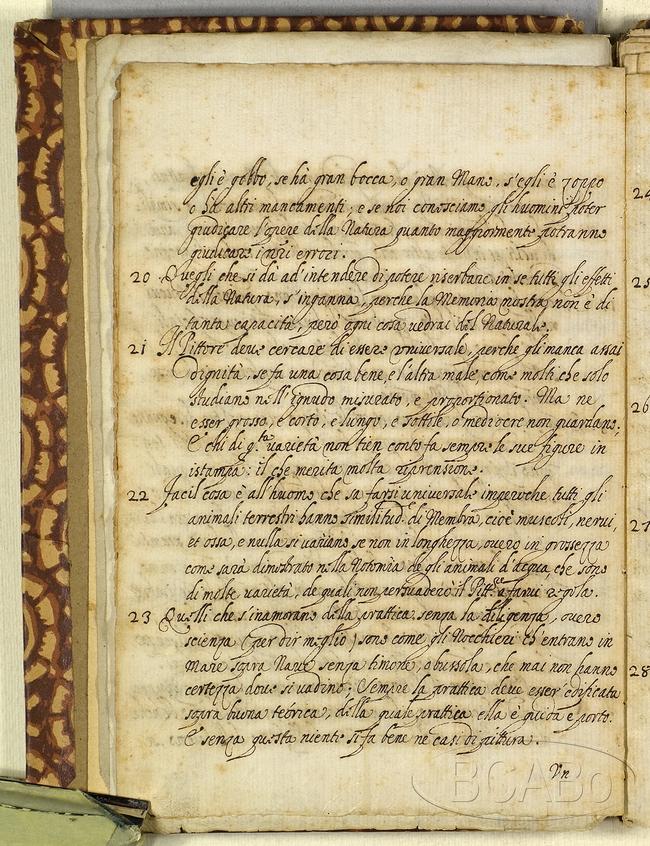 egli è gobbo, se hà gran bocca, o gran Mano, s'egli è zoppo
o hà altri mancamenti, e se noi conosciamo gli huomini poter
giudicare l'opere della Natura quanto maggiormente potranno
giudicare i nri errori.
20 Quegli che si dà ad'intendere di potere riserbare in se tutti gli effetti
della Natura, s'inganna, perche la Memoria nostra non è di
tanta capacità, però ogni cosa vedrai dal Naturale.
21 Il Pittore deve cercare di essere vniversale, perche gli manca assai
Dignità, se fa una cosa bene, e l'altra male, come molti che solo
studiano nell'ignudo misurato, e proportionato. Ma ne
esser grosso, e corto, e lungo, e sottile, o mediocre non guardano,
E chi di q.ta varietà non tien conto fa sempre le sue figure in
istampa: il che merita molta riprensione.
22 Facil cosa è all'huomo che sa farsi universale imperoche tutti gli
animali terrestri hanno similitud.e di Membra, cioè muscoli, nervi,
et ossa, e nulla si variano se non in longhezza, overo in grossezza
come sarà dimostrato nella Notomia de gli animali d'acqua, che sono
di molte varietà, de quali non persuaderò il Pitt.re a farvi regola.
23 Quelli che s'inamorano della prattica senza la diligenza, overo
scienza (per dir meglio) sono come gli Nocchieri ch'entrano in
Mare sopra Nave senza timone, o bussola, che mai non hanno
certezza dove si vadino; Sempre la prattica deve esser edificata
sopra buona teorica, della quale prattica ella è guida e porto.
E senza questa niente si fa bene ne casi di pittura.
Vn
24
25
26
27
28
BCABo